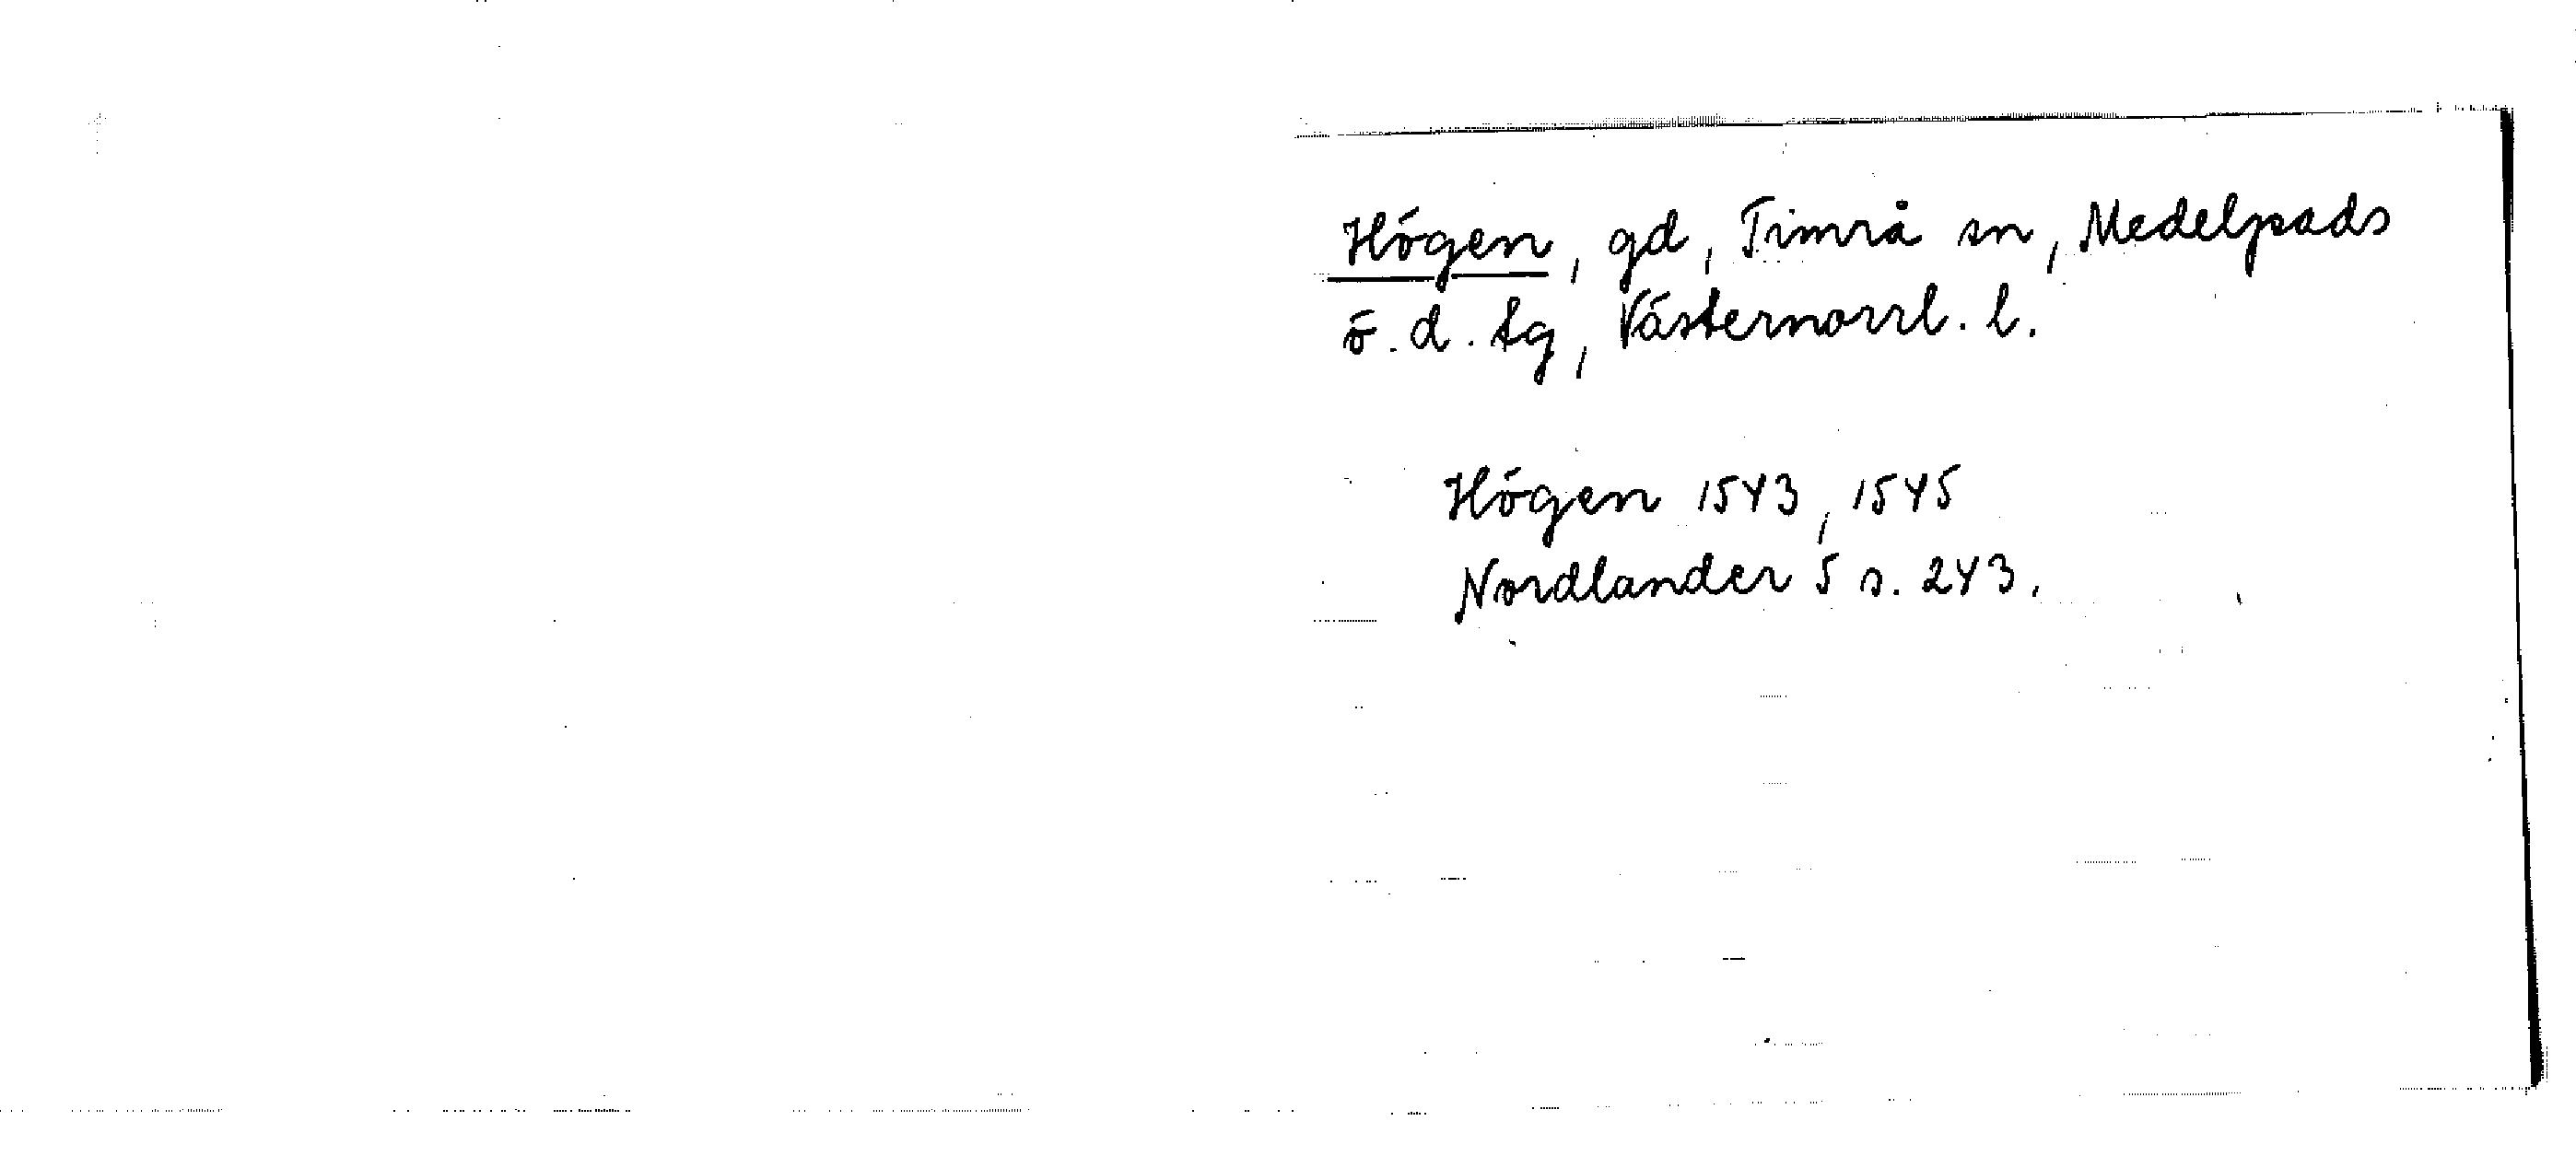 Högen, gd, Timrå sn, Medelpads
ö. d. tg, Västernorrl. l.
Högen 1543, 1545
Nordlander 5 s. 243.